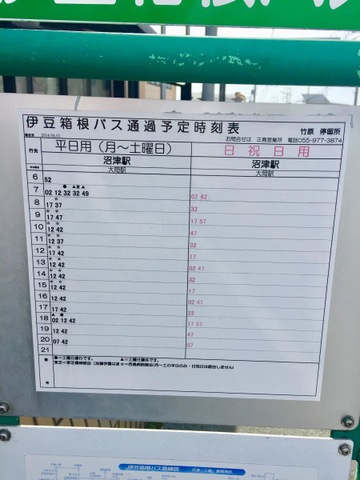 伊豆箱根バス通過予定時刻表 竹原 停留所
お問合せは 三島営業所 電話055-977-3874
行先 平日用(月〜土曜日) 日 祝 日 用
沼津駅 沼津駅
大岡駅 大岡駅
6 52
7 02 12 32 32 49 02 42
8 17 37 32
9 17 47 17 57
10 17 42 47
11 12 37 32
12 12 42 17
13 12 42 02 47
14 12 42 32
15 12 42 17
16 12 42 02 47
17 12 42 22
18 02 12 42 17 57
19 12 42 47
20 02 42 07 42
21
伊豆箱根バス路線図